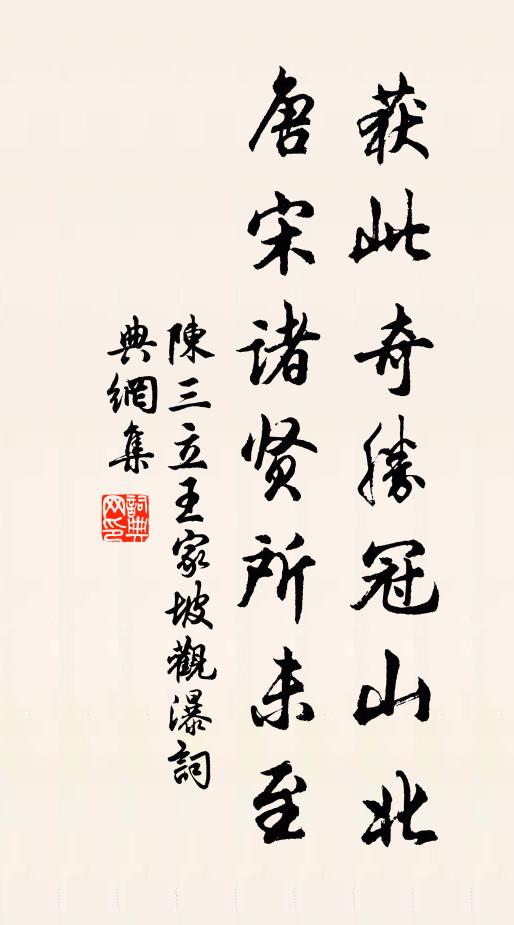 获此奇勝冠山北
唐宋诸贤所未至
陳三立王家坡觀瀑詞
典網集
詞典
网印